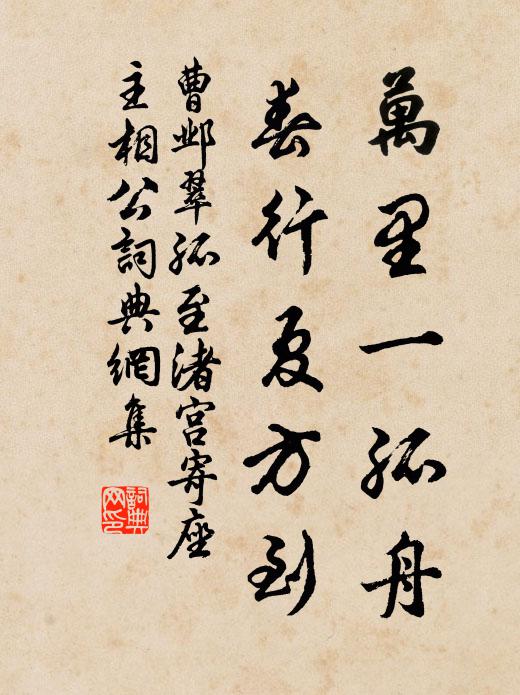 萬里一孤舟
春行夏方到
曹邺翠孤至渚宫寄座
主相公詞典網集
詞典
网印